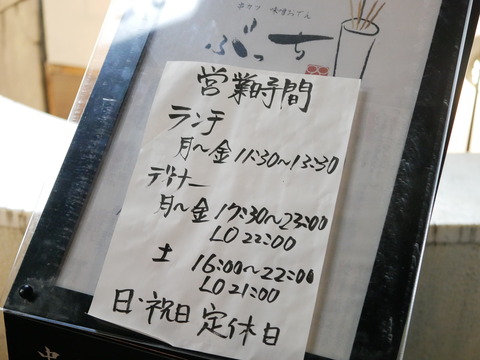 串カツ 味噌おでん
ぶっち
営業時間
ランチ
月〜金 11:30〜13:30
ディナー
月〜金 17:30〜23:00
LO 22:00
土 16:00〜22:00
LO 21:00
日・祝日 定休日